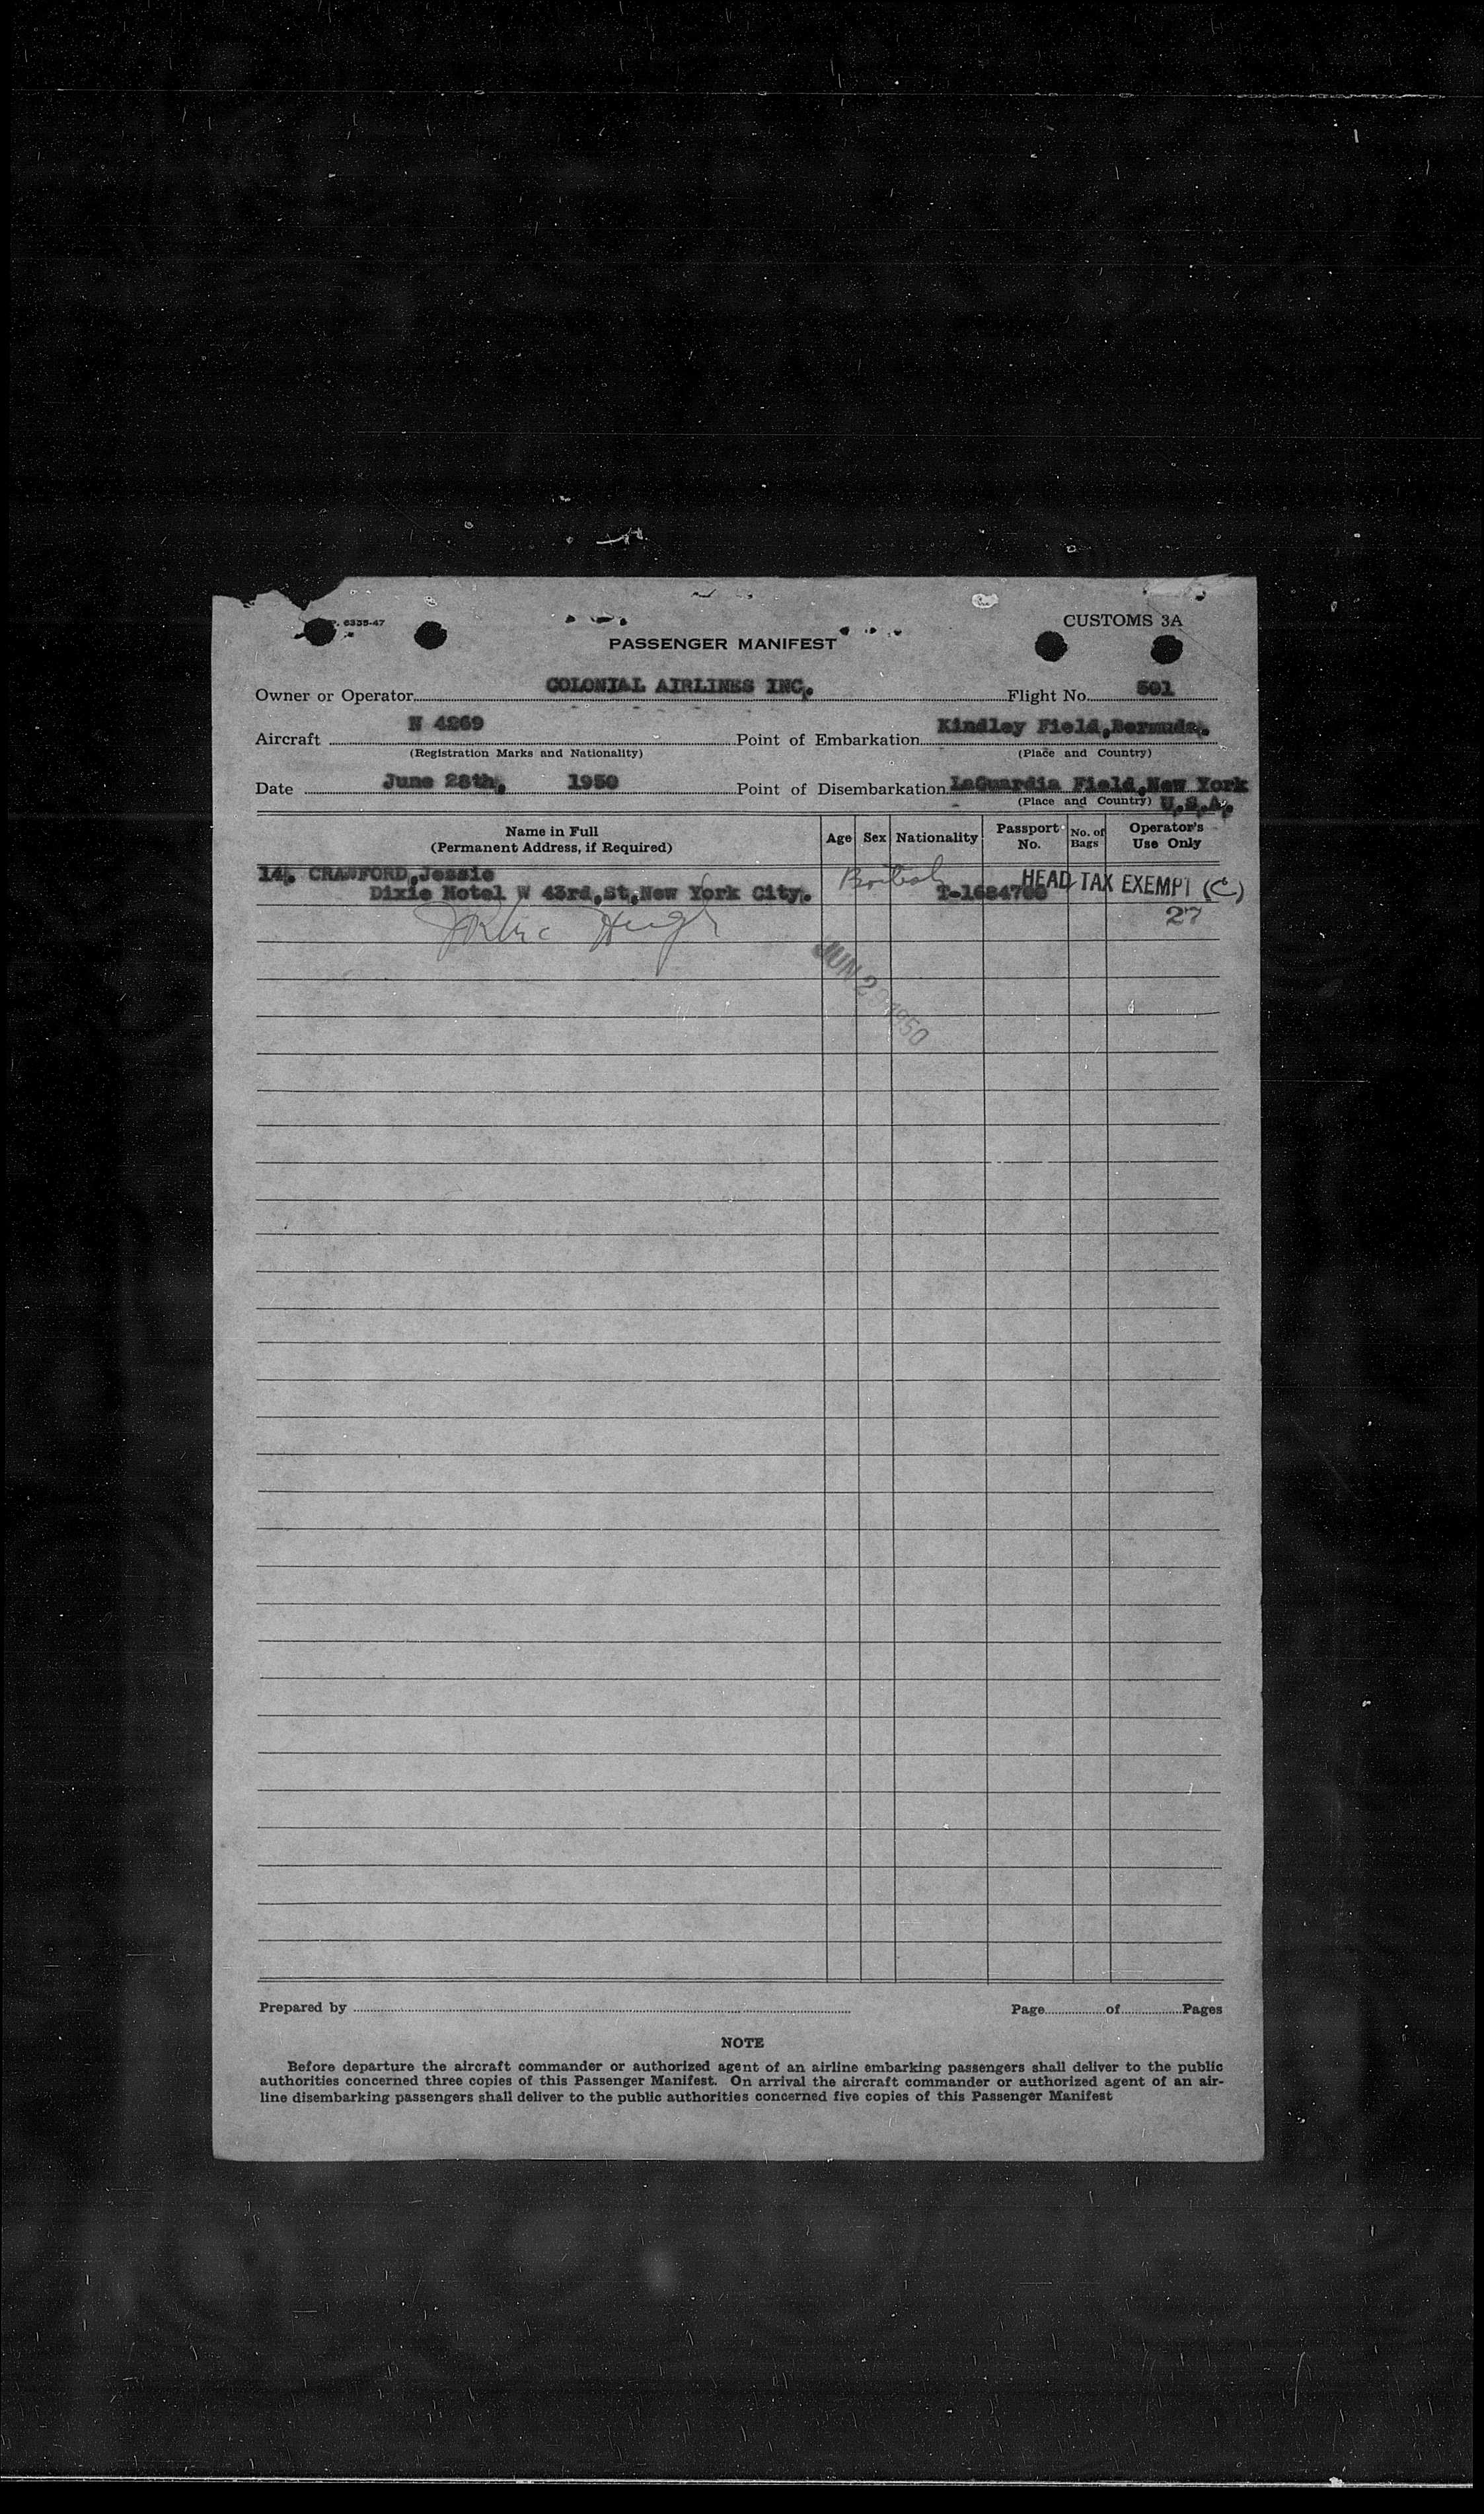 P. 6335-47
CUSTOMS 3A
PASSENGER MANIFEST
Owner or Operator COLONIAL AIRLINES INC. Flight No. 501
Aircraft N 4269 Point of Embarkation Kindley Field,Bermuda.
(Registration Marks and Nationality) (Place and Country)
Date June 28th, 1950 Point of Disembarkation LaGuardia Field,New York
(Place and Country) U.S.A.
Name in Full Age Sex Nationality Passport No. No. of Bags Operator's Use Only
(Permanent Address, if Required)
14. CRAWFORD,Jessie British HEAD TAX EXEMPT (C)
Dixie Hotel W 43rd,St,New York City. T-1684766
27
JUN 2 1950
Prepared by Page of Pages
NOTE
Before departure the aircraft commander or authorized agent of an airline embarking passengers shall deliver to the public
authorities concerned three copies of this Passenger Manifest. On arrival the aircraft commander or authorized agent of an air-
line disembarking passengers shall deliver to the public authorities concerned five copies of this Passenger Manifest